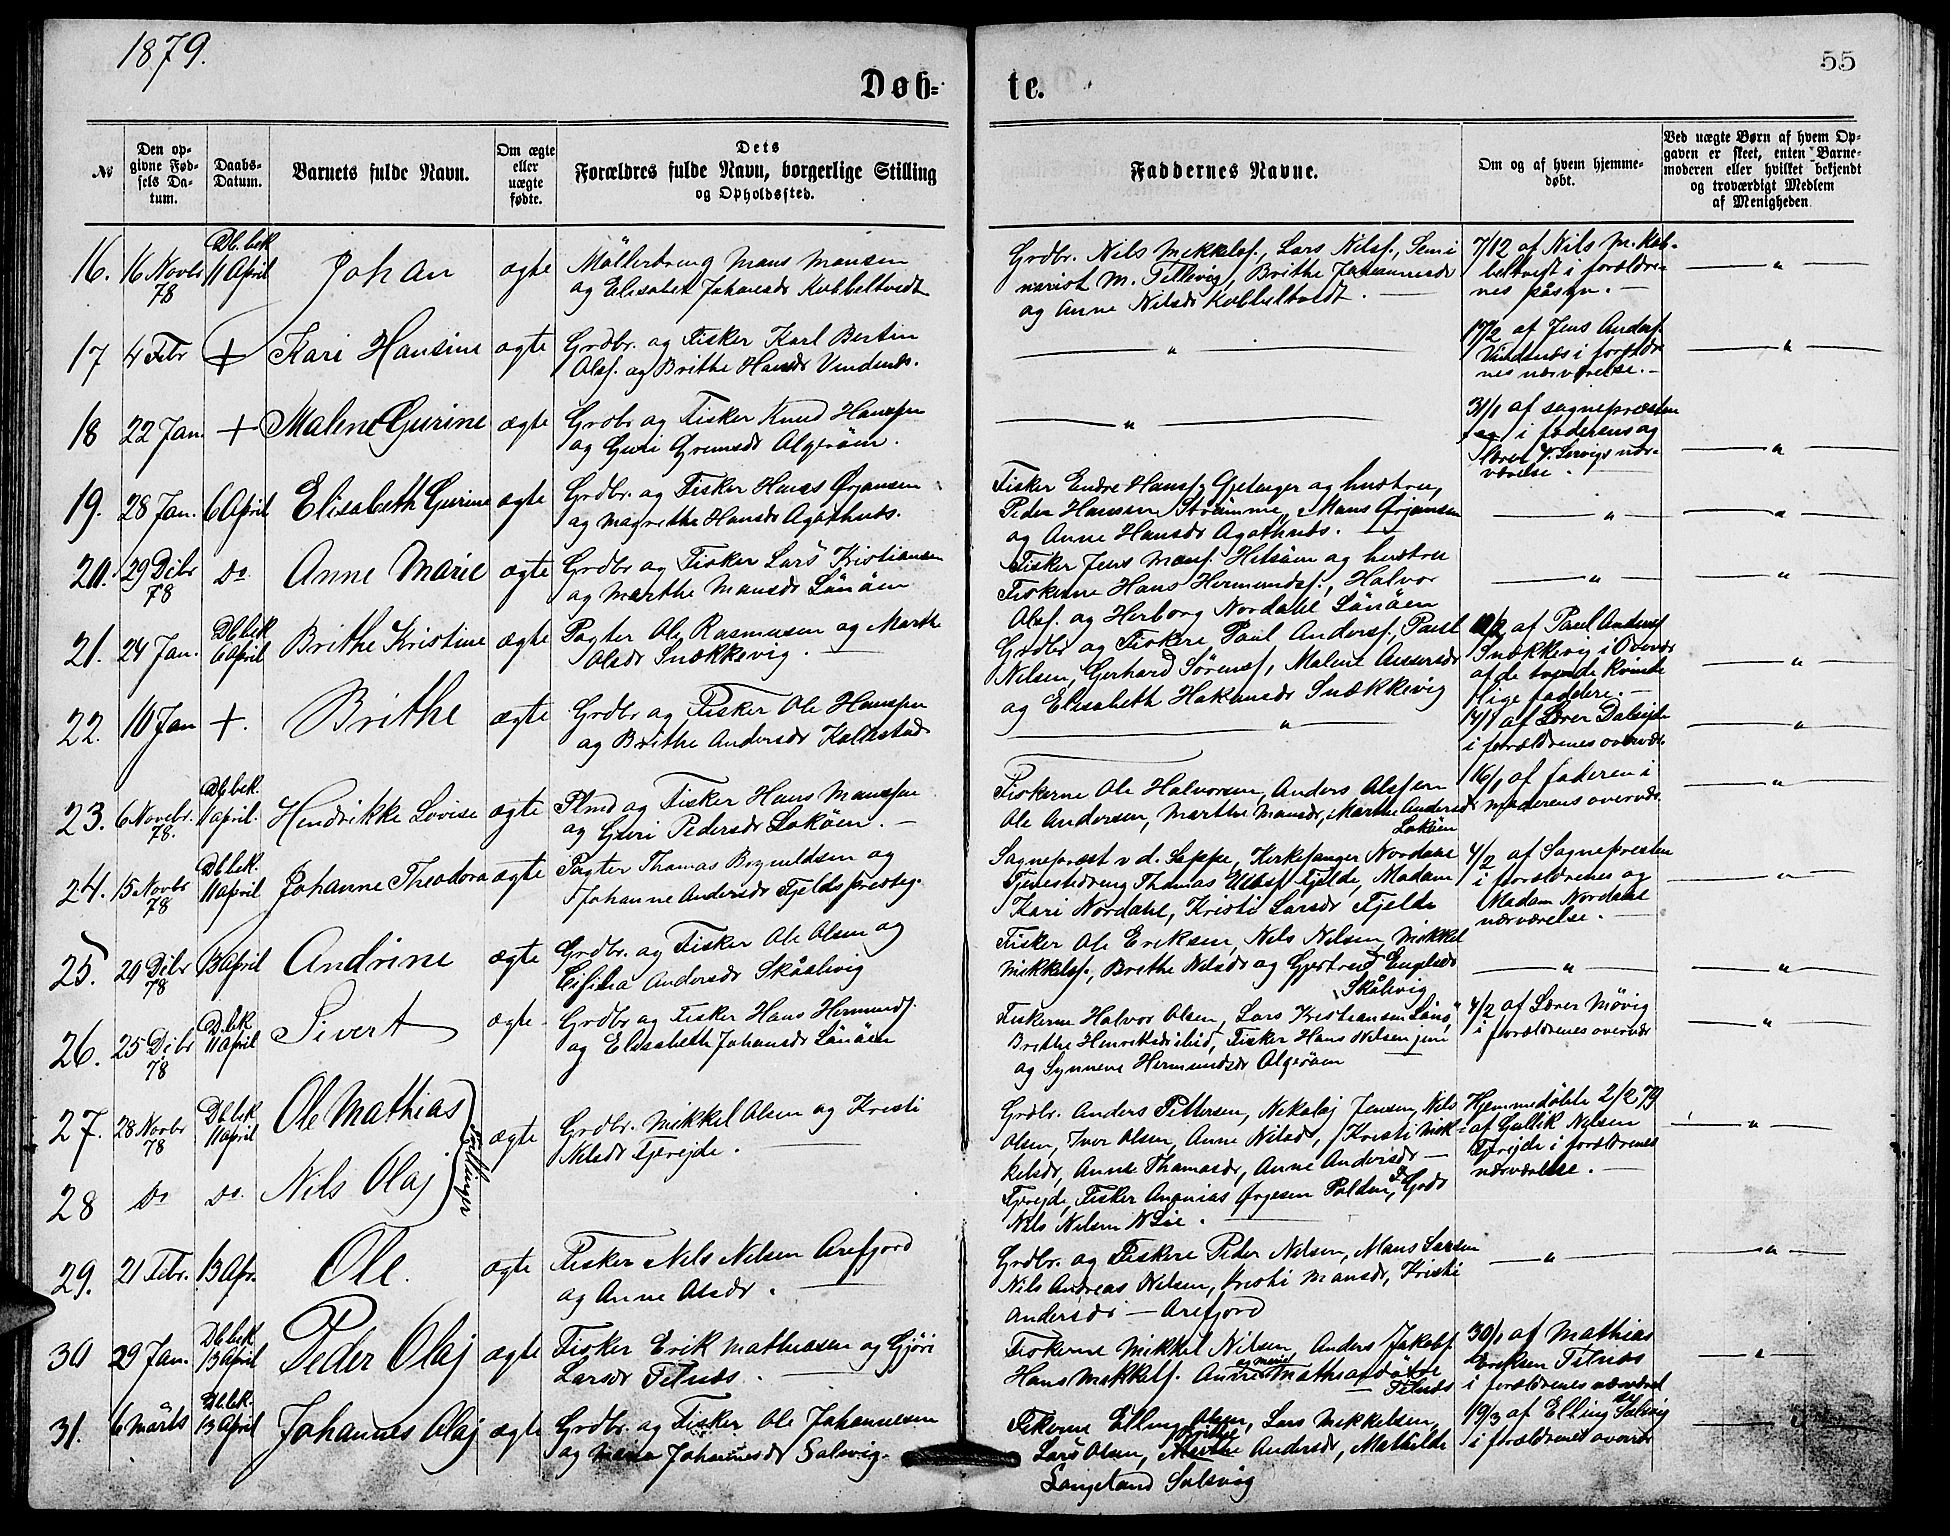 1879.
55
Døb-
te.
№
Den op-
givne Fød-
sels Da-
tum.
Daabs-
Datum.
Barnets fulde Navn.
Om ægte
eller
uægte
fødte.
Dets
Forældres fulde Navn, borgerlige Stilling
og Opholdssted.
Faddernes Navne.
Om og af hvem hjemme-
døbt.
Ved uægte Børn af hvem Op-
gaven er skeet, enten Barne-
moderen eller hvilket bekjendt
og troværdigt Medlem
af Menigheden
16. 16 Novbr 78
Db. bek 11 April
Johan
ægte
Møllerdreng Mans Mansen
og Elisabet Johansdr Kobbeltvedt
Grdbr. Nils Mikkelsf., Lars Nilsf., Semi
narist M. Tellevig, Brithe Johannesdr
og Anne Nilsdr Kobbeltvedt.
7/12 af Nils M. Kob-
beltveit i forældre-
nes påsyn.
"
17 4 Febr + Kari Hansine ægte
Grdbr. og Fisker Karl Bertin
Olsf. og Brithe Hansdr Vindenes.
"
17/2 af Jens Andersf.
Vindenes i foræld-
nes nærværelse.
"
18 22 Jan. + Malene Gurine ægte
Grdbr og Fisker Knud Hanssen
og Guri Gremsdr Algerøen.
"
31/1 af sognepræsten
i faderens og
Lærer Servigs nær-
værelse.
"
19. 28 Jan. 6 April Elisabeth Gurine ægte
Grdbr. og Fisker Hans Ørjansen
og Magrethe Hansdr Agathnes.
Fisker Endre Hansf. Gjetanger og hustru,
Peder Hansen Strømme, Mans Ørjansen
og Anne Hansdr Agathnes.
"
"
20. 29 Dcbr 78 Do. Anne Marie ægte
Grdbr og Fisker Lars Kristiansen
og Marthe Mansdr Lønøen
Fisker Jens Mansf. Hilsøen og hustru
Fiskerne Hans Hermundsf., Halvor
Olsf. og Herborg Nordahl Lønøen
"
"
21. 24 Jan. Db bek 6 April Brithe Kristine ægte
Pagter Ole Rasmusen og Marthe
Olsdr Snekkevig.
Grdbr og Fiskere Paul Andersf., Paul
Nilsen, Gerhard Sørensf., Malene Andersdr
og Elisabeth Hakonsdr Snækkevig
af Paul Andersf
Snækkevig i Overvær
af de tvende kvinde
lige faddere.
"
22. 10 Jan +. Brithe ægte
Grdbr og Fisker Ole Hanssen
og Brithe Andersdr Kallestad
"
14/1 af Lærer Dalseide
i forældrenes overvær.
"
23. 6 Novbr. 78. Db bek. 11 April. Hendrikke Lovise ægte
Plmd og Fisker Hans Manssen
og Guri Pedersdr Lokøen.
Fiskerne Ole Halvorsen, Anders Olssen
Ole Andersen, Marthe Mansdr, Marthe Andersdr
Lokøen
16/1 af faderen i
moderens overvær.
"
24. 15 Novbr 78 Db bek. 11 April Johanne Theodora ægte
Pagter Thomas Bognildsen og
Johanne Andersdr Fjelds prestg.
Sognepræst v. d. Lippe, Kirkesanger Nordale
Tjenestedreng Thomas Fjelde, Madam
Kari Nordahl, Kristi Larsdr Fjelde
4/2 af Sognepresten
i forældrenes og
Madam Nordahl
nærværelse.
"
25. 20 Dcbr 78 13 April Andrine ægte
Grdbr. og Fisker Ole Olsen og
Andersdr Skålevig
Fisker Ole Eriksen, Nils Nilsen, Mikkel
Mikkelsf., Brithe Nilsdr og Gjertrud Engelsdr
Skålevig
"
"
26. 25 Dcbr 78 D. bek 11 April Sivert ægte
Grdbr og Fisker Hans Hermundsf.
og Elisabeth Johansdr Lønøen
Fiskerne Halvor Olsen, Lars Kristiansen Lønø,
Brithe Henriksdr ibid, Fisker Hans Nilsen jun
og Synneve Hermundsdr Algerøen
4/2 af Lærer Møvig
i forældrenes overvær
"
27. 28 Novbr 78 Db bek 11 April Ole Mathias ægte
Tvillinger
Grdbr. Mikkel Olsen og Kristi
Nilsdr Fjereide.
Grdbr. Anders Pettersen, Nikolaj Jensen, Nils
Olsen, Iver Olsen, Anne Nilsd, Kristi Mik-
kelsdr, Anne Thomasdr, Anne Andersdr
Fjereide, Fisker Ananias Ørjesen Polden, Grdbr
Nils Nilsen
Hjemmedøbte 2/2 79
af Gullik Nilsen
Fjereide i forældrenes
nærværelse.
"
28 Do Do. Nils Olaj
29. 21 Febr. 13 Apr. Ole. ægte
Fisker Nils Nilsen Arefjord
og Anne Olsdr.
Grdbr. og Fiskere Peder Nilsen, Mans Larsen
Nils Andreas Nilsen, Kristi Mansdr, Kristi
Andersdr — Arefjord
"
"
30 29 Jan. Db bek 13 April Peder Olaj ægte
Fisker Erik Mathiasen og Gjøri
Larsdr Telnes.
Fiskerne Mikkel Nilsen, Anders Jakobsf.
Hans Mikkelsf. Anne og Marie Mathiasdøtre
Telnes
30/1 af Mathias
Eriksen Telnes
i forældrenes nærværel
"
31. 6 Märts Db bek. 13 April Johannes Olaj ægte
Grdbr. og Fisker Ole Johannesen
og Maria Johannesdr Solsvig.
Fiskerne Elling Olsen, Lars Mikkelsen,
Lars Olsen, Brithe Andersdr, Mathilde
Langeland Solsvig
19/3 af Elling Solsvig
i forældrenes overvær